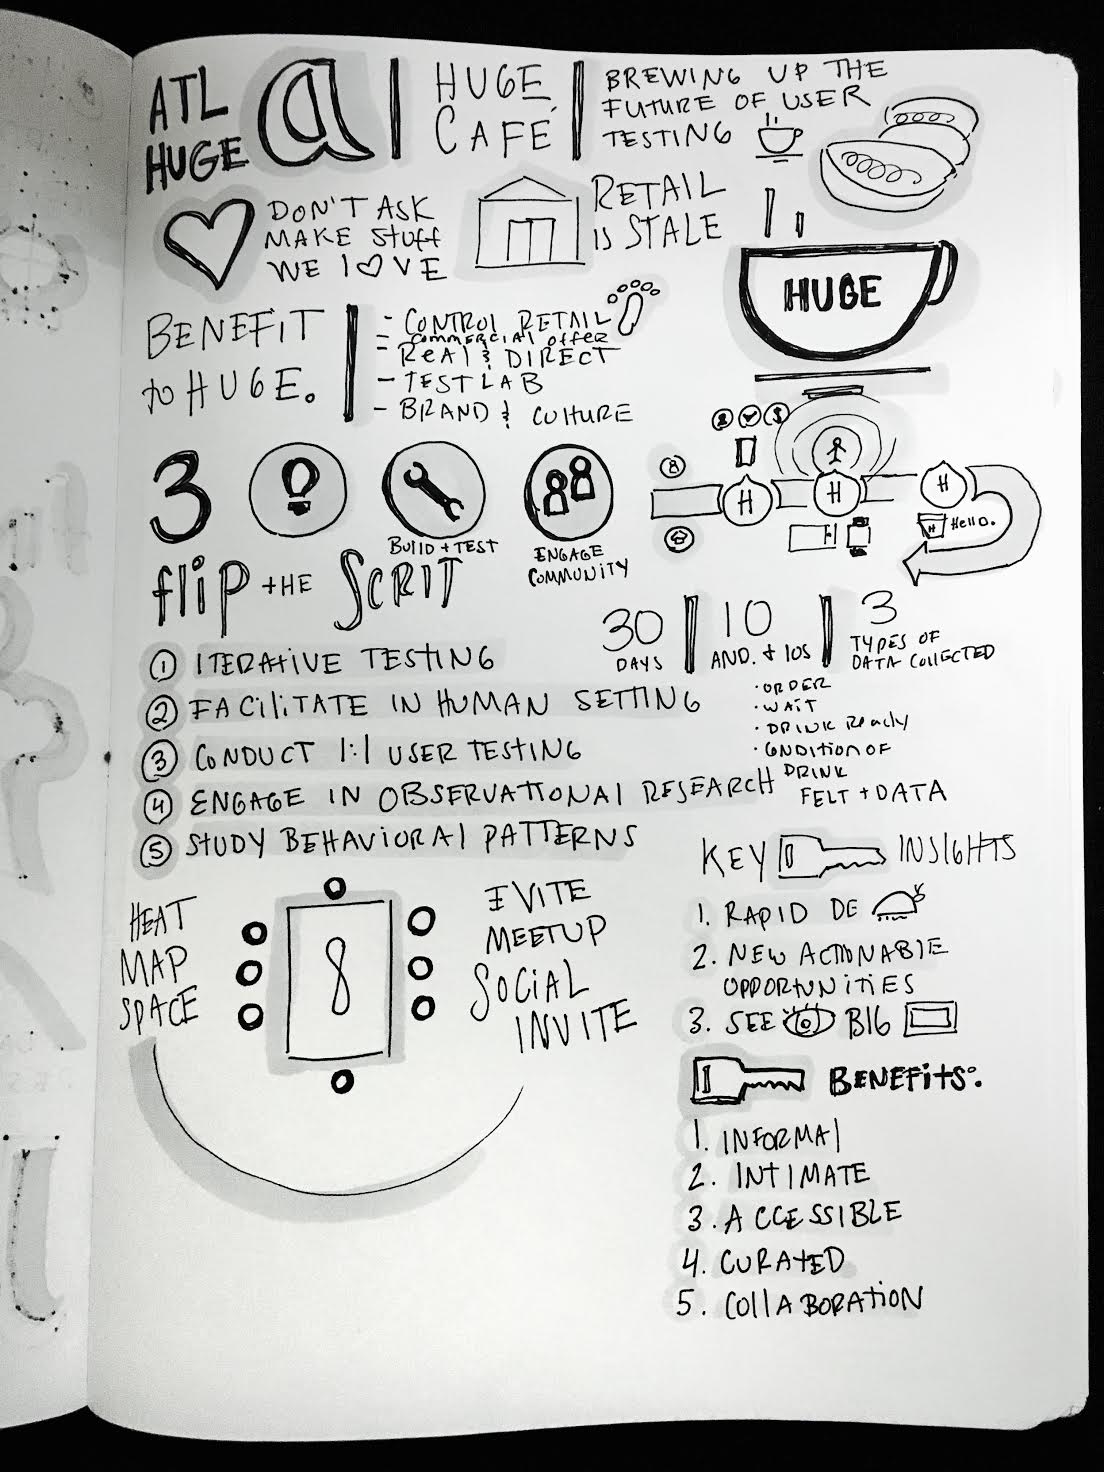 ATL
HUGE
a
HUGE
CAFÉ
BREWING UP THE
FUTURE OF USER
TESTING
DON'T ASK
MAKE STUFF
WE LOVE
RETAIL
IS STALE
HUGE
BENEFIT
to HUGE.
- CONTROL RETAIL
= COMMERCIAL OFFER
- REAL & DIRECT
- TEST LAB
- BRAND & CULTURE
3
BUILD + TEST
ENGAGE
COMMUNITY
$
H
H
H
H
H
Hello.
flip THE SCRIT
30
DAYS
10
AND. + IOS
3
TYPES OF
DATA COLLECTED
· ORDER
· WAIT
· DRINK READY
· CONDITION OF
DRINK
FELT + DATA
1 ITERATIVE TESTING
2 FACILITATE IN HUMAN SETTING
3 CONDUCT 1:1 USER TESTING
4 ENGAGE IN OBSERVATIONAL RESEARCH
5 STUDY BEHAVIORAL PATTERNS
HEAT
MAP
SPACE
8
EVITE
MEETUP
SOCIAL
INVITE
KEY INSIGHTS
1. RAPID DE
2. NEW ACTIONABLE
OPPORTUNITIES
3. SEE BIG
BENEFITS:
1. INFORMAL
2. INTIMATE
3. ACCESSIBLE
4. CURATED
5. COLLABORATION